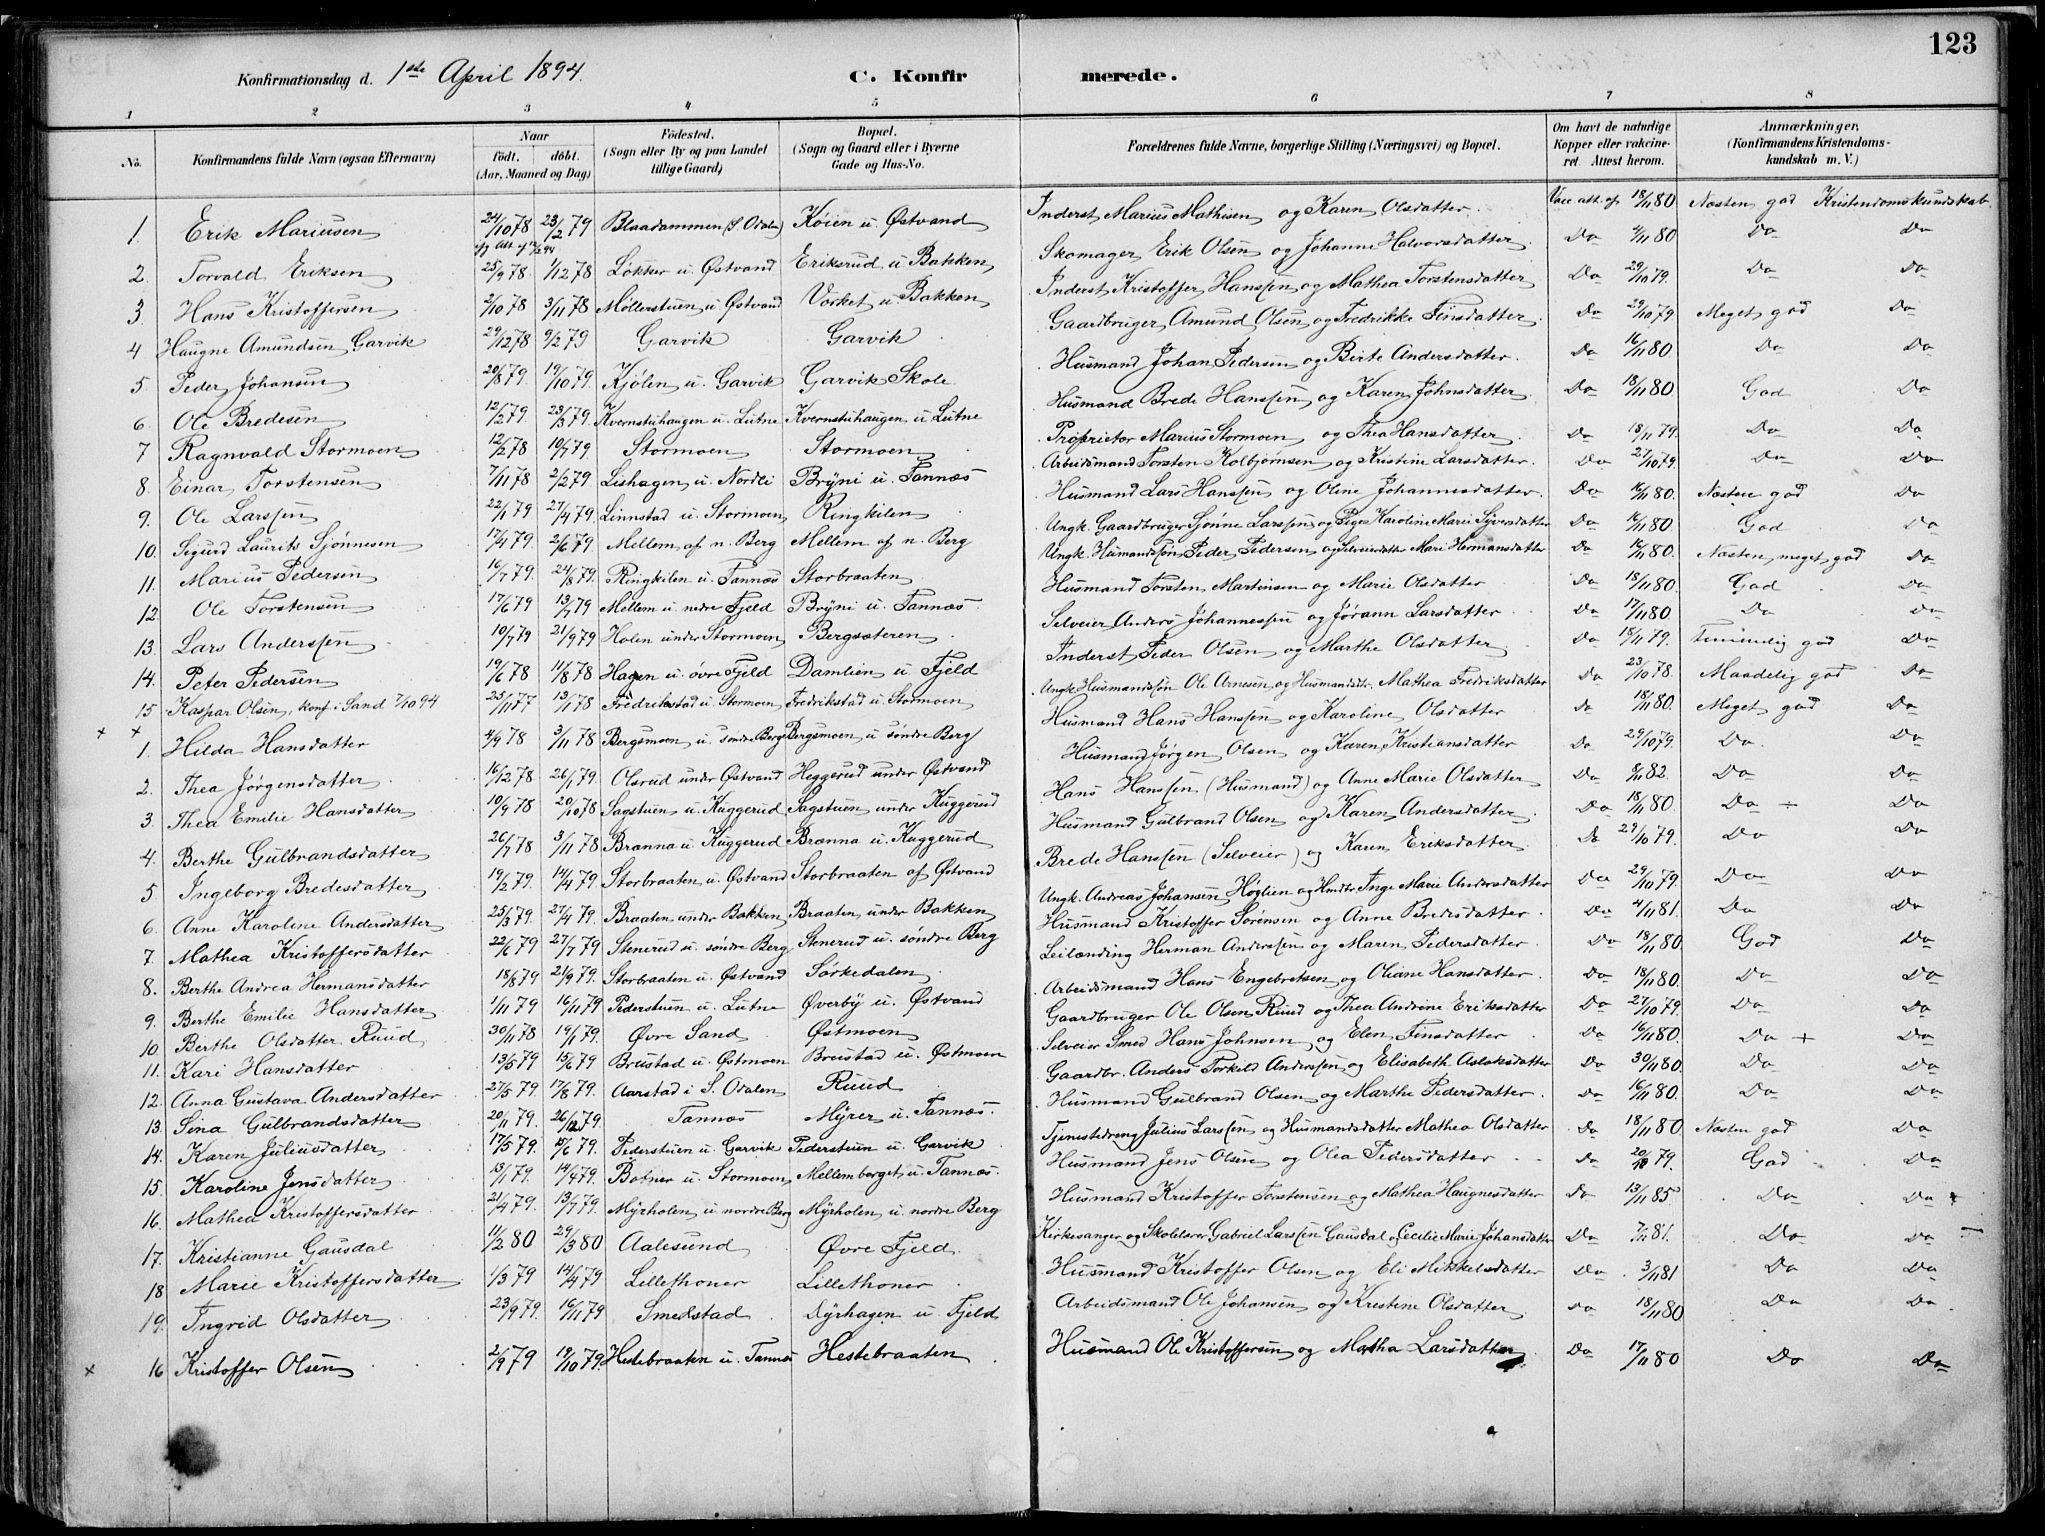 123
Konfirmationsdag d. 1ste April 1894. C. Konfirmerede.
1 2 3 4 5 6 7 8
No. Konfirmandens fulde Navn (ogsaa Efternavn) Naar födt. döbt. (Aar, Maaned og Dag) Födested. (Sogn eller By og paa Landet tillige Gaard) Bopæl. (Sogn og Gaard eller i Byerne Gade og Hus-No. Forældrenes fulde Navne, borgerlige Stilling (Næringsvei) og Bopæl. Om havt de naturlige Kopper eller vakcineret. Attest herom. Anmærkninger. (Konfirmandens Kristendomskundskab m. V.)
1. Erik Mariusen 24/10 78 23/2 79 Blaadammen (S. Odalen) Köien u. Østvand Inderst Marius Mathisen og Karen Olsdatter Vacc. att. af 18/11 80 Næsten god Kristendomskundskab
2. Torvald Eriksen 25/9 78 1/12 78 Lökker u. Østvand Eriksrud u. Bakken Skomager Erik Olsen og Johanne Halvorsdatter Do 4/11 80 Do Do
3. Hans Kristoffersen 2/10 78 3/11 78 Möllerstuen u. Østvand Vorket u. Bakken Inderst Kristoffer Hanssen og Mathea Torstensdatter Do 29/10 79. Do Do
4 Haugne Amundsen Garvik 29/12 78 9/2 79 Garvik Garvik Gaardbruger Amund Olsen og Fredrikke Finsdatter Do 29/10 79 Meget god Do
5. Peder Johansen 20/8 79. 19/10 79. Kjölen u. Garvik Garvik Skole Husmand Johan Pedersen og Birte Andersdatter. Do 16/11 80 Do Do
6. Ole Bredesen 12/2 79. 23/3 79. Kvernstuhaugen u. Lutne Kvernstuhaugen u. Lutne Husmand Brede Hanssen og Karen Johnsdatter Do 18/11 80 God Do
7 Ragnvald Stormoen 12/2 78 10/7 79 Stormoen Stormoen Proprietær Marius Stormoen og Thea Hansdatter Do 18/11 79. Do Do
8. Einar Torstensen 7/11 78 2/2 79 Lishagen u. Nordli Bryni u. Tannæs Arbeidsmand Torsten Kolbjørnsen og Kristine Larsdatter. Do 27/10 79. Do Do
9. Ole Larssen 22/1 79 27/4 79 Linnstad u. Stormoen Ringkilen Husmand Lars Hanssen og Oline Johannesdatter. Do 16/11 80. Næsten god Do
10. Sigurd Laurits Sjönnesen 17/4 79. 2/6 79 Mellem af n. Berg Mellem af n. Berg Ungk. Gaardbruger Sjönne Larssen og Pige Karoline Marie Syversdatter Do 16/11 80 God Do
11. Marius Pedersen 16/7 79. 24/8 79. Ringkilen u. Tannæs Storbraaten Ungk. Husmandssön Peder Pedersen og Selveierdatter Mari Hermansdatter Do 16/11 80. Næsten meget god Do
12. Ole Torstensen 17/6 79 13/7 79 Mellem u. nedre Fjeld Bryni u. Tannæs Husmand Torsten Martinsen og Marie Olsdatter Do 18/11 80. God Do
13. Lars Anderssen 10/7 79 21/9 79 Holen under Stormoen Bergsæteren Selveier Anders Johannessen og Jörann Larsdatter Do 17/11 80 Do Do
14. Peter Pedersen 19/6 78 11/8 78 Hagen u. övre Fjeld Damlien u. Fjeld Inderst Peder Olsen og Marthe Olsdatter Do 18/11 79. Temmelig god Do
15 Kaspar Olsen, konf. i Sand 7/10 94 25/11 77 13/1 78 Fredrikstad u. Stormoen Fredrikstad u. Stormoen Ungk. Husmandssön Ole Arnesen og Husmandsdtr. Mathea Fredriksdatter Do 23/10 78. Maadelig god Do
1. Hilda Hansdatter 4/9 78 3/11 78 Bergsmoen u. søndre Berg Bergsmoen u. söndre Berg Husmand Hans Hanssen og Karoline Olsdatter Do 18/11 80. Meget god Do
2. Thea Jörgensdatter 16/12 78 26/1 79. Olsrud under Østvand Heggerud under Østvand Husmand Jörgen Olsen og Karen Kristiansdatter Do 29/10 79. Do. Do
3. Thea Emilie Hansdatter 10/9 78 20/10 78 Sagstuen u. Kuggerud Sagstuen under Kuggerud Hans Hanssen (Husmand) og Anne Marie Olsdatter Do 8/11 82. Do Do
4. Berthe Gulbrandsdatter 26/7 78 3/11 78 Brænna u. Kuggerud Brænna u. Kuggerud Husmand Gulbrand Olsen og Karen Andersdatter Do 18/11 80. Do ÷ Do
5. Ingeborg Bredesdatter 19/2 79. 14/4 79. Storbraaten u. Østvand Storbraaten af Østvand Brede Hanssen (Selveier) og Karen Eriksdatter Do 29/10 79. Do Do
6. Anne Karoline Andersdatter 25/3 79 27/4 79. Braaten under Bakken Braaten under Bakken Ungk. Andreas Johansen Höglien og Inge Marie Andersdatter Do 29/10 79. Do Do
7. Mathea Kristoffersdatter 22/6 79 27/7 79 Stenerud u. söndre Berg Stenerud u. söndre Berg Husmand Kristoffer Sörensen og Anne Bredesdatter Do 4/11 81. Do Do
8. Berthe Andrea Hermansdatter 18/8 79 21/9 79. Storbraaten u. Østvand Sörkedalen Leilænding Herman Anderssen og Maren Pedersdatter Do 18/11 80. God Do
9. Berthe Emilie Hansdatter 1/11 79 16/11 79 Pederstuen u. Lutne Överby u. Østvand Arbeidsmand Hans Engebretsen og Oliane Hansdatter. Do 18/11 80. Do Do
10. Berthe Olsdatter Ruud 30/11 78 19/1 79. Övre Sand Østmoen Gaardbruger Ole Olsen Ruud og Thea Andrine Eriksdatter Do 27/10 79. Do Do
11. Kari Hansdatter 13/5 79 15/6 79 Brustad u. Østmoen Brustad u. Østmoen Selveier Smed Hans Johnsen og Elen Finsdatter Do 16/11 80. Do + Do
12. Anna Gustava Andersdatter 27/5 79. 17/8 79. Aarstad i S. Odalen Ruud Gaardbr. Anders Torkild Anderssen og Elisabeth Aslaksdatter Do 30/11 80. Do Do
13. Sina Gulbrandsdatter 20/11 79. 26/12 79. Tannæs Myrer u. Tannæs. Husmand Gulbrand Olsen og Marthe Pedersdatter. Do 16/11 80. Do Do
14. Karen Juliusdatter 17/5 79. 15/6 79. Pederstuen u. Garvik Pederstuen u. Garvik Tjenestedreng Julius Larssen og Husmandsdatter Mathea Olsdatter Do 18/11 80 Næsten god Do
15. Karoline Jensdatter 13/1 79. 14/4 79. Botner u. Stormoen Mellemberget u. Tannæs. Husmand Jens Olsen og Olea Pedersdatter Do 20/10 79. God Do
16. Mathea Kristoffersdatter 21/4 79. 13/7 79. Myrholen u. nordre Berg Myrholen u. nordre Berg Husmand Kristoffer Torstensen og Mathea Haugnesdatter Do 13/11 85 Do Do
17. Kristianne Gausdal 11/2 80 29/3 80 Aalesund Övre Fjeld Kirkesanger og Skolelærer Gabriel Larssen Gausdal og Cecilie Marie Johansdatter Do 7/11 81. Do Do
18 Marie Kristoffersdatter 1/3 79 14/4 79 Lillethoner Lillethoner Husmand Kristoffer Olsen og Eli Mikkelsdatter Do 3/11 81 Do Do
19. Ingrid Olsdatter 23/9 79. 16/11 79 Smedstad Dyrhagen u. Fjeld Arbeidsmand Ole Johansen og Kristine Olsdatter Do 18/11 80 Do Do
16 Kristoffer Olsen 2/9 79 19/10 79. Hestebraaten u. Tannæs Hestebraaten Husmand Ole Kristoffersen og Martha Larsdatter Do 17/11 80 Do Do